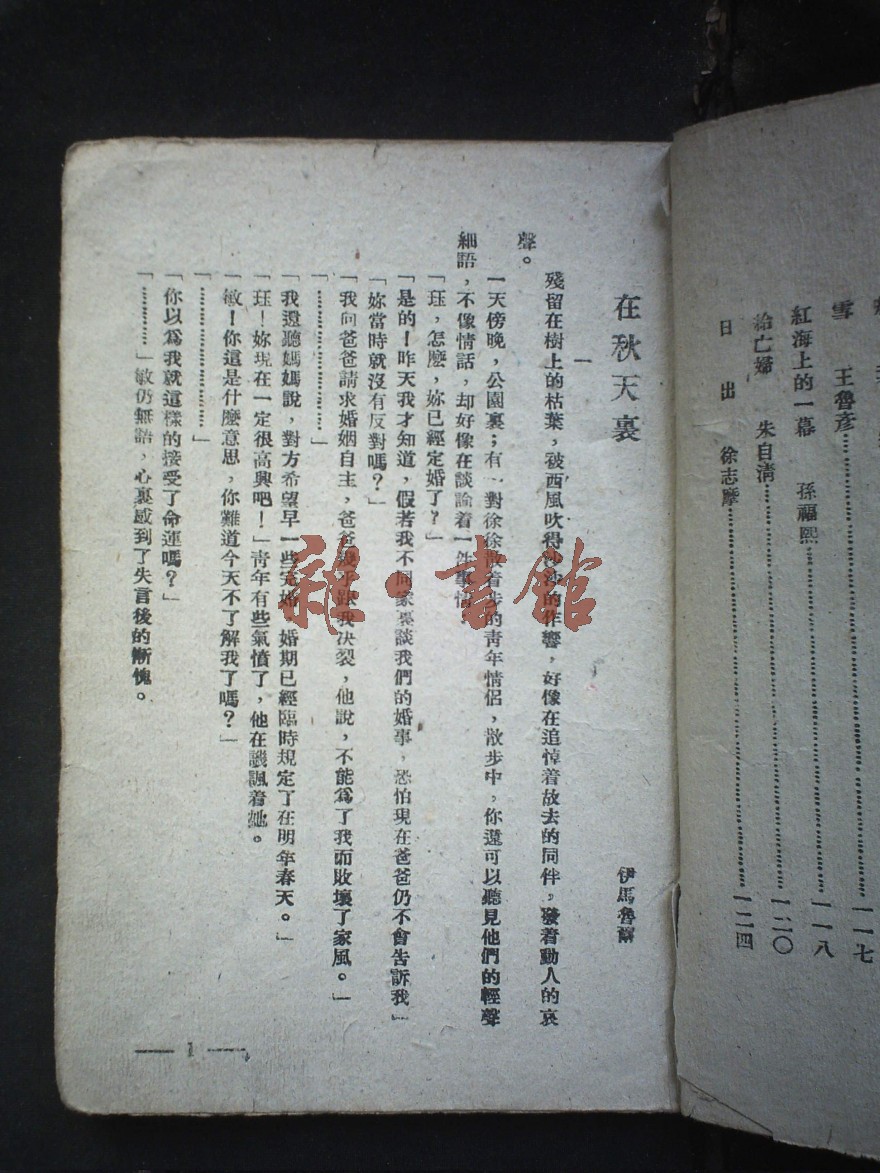 雪　王魯彥……………………一一七
紅海上的一幕　孫福熙……………………一一八
給亡婦　朱自清……………………一二〇
日出　徐志摩……………………一二四
在秋天裏
伊馬魯
一
殘留在樹上的枯葉，被西風吹得沙沙的作響，好像在追悼着故去的同伴，發着動人的哀
聲。
一天傍晚，公園裏；有一對徐徐散着步的青年情侶，散步中，你還可以聽見他們的輕聲
細語，不像情話，却好像在談論着一件事情
「珏，怎麽，妳已經定婚了？」
「是的！昨天我才知道，假若我不同家裏談我們的婚事，恐怕現在爸爸仍不會告訴我」
「妳當時就沒有反對嗎？」
「我向爸爸請求婚姻自主，爸爸幾乎跟我决裂，他說，不能爲了我而敗壞了家風。」
「……………………」
「我還聽媽媽說，對方希望早一些完婚，婚期已經臨時規定了在明年春天。」
「珏！妳現在一定很高興吧！」青年有些氣憤了，他在譏諷着她。
「敏！你這是什麼意思，你難道今天不了解我了嗎？」
「……………………」
「你以爲我就這樣的接受了命運嗎？」
「…………」敏仍無語，心裏感到了失言後的慚愧。
— 1 —
雜·書館